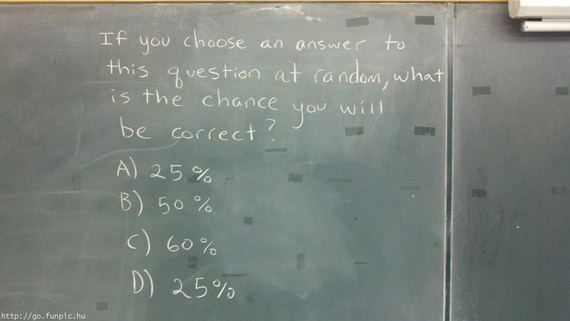 If you choose an answer to
this question at random, what
is the chance you will
be correct?
A) 25%
B) 50%
C) 60%
D) 25%
http://go.funpic.hu